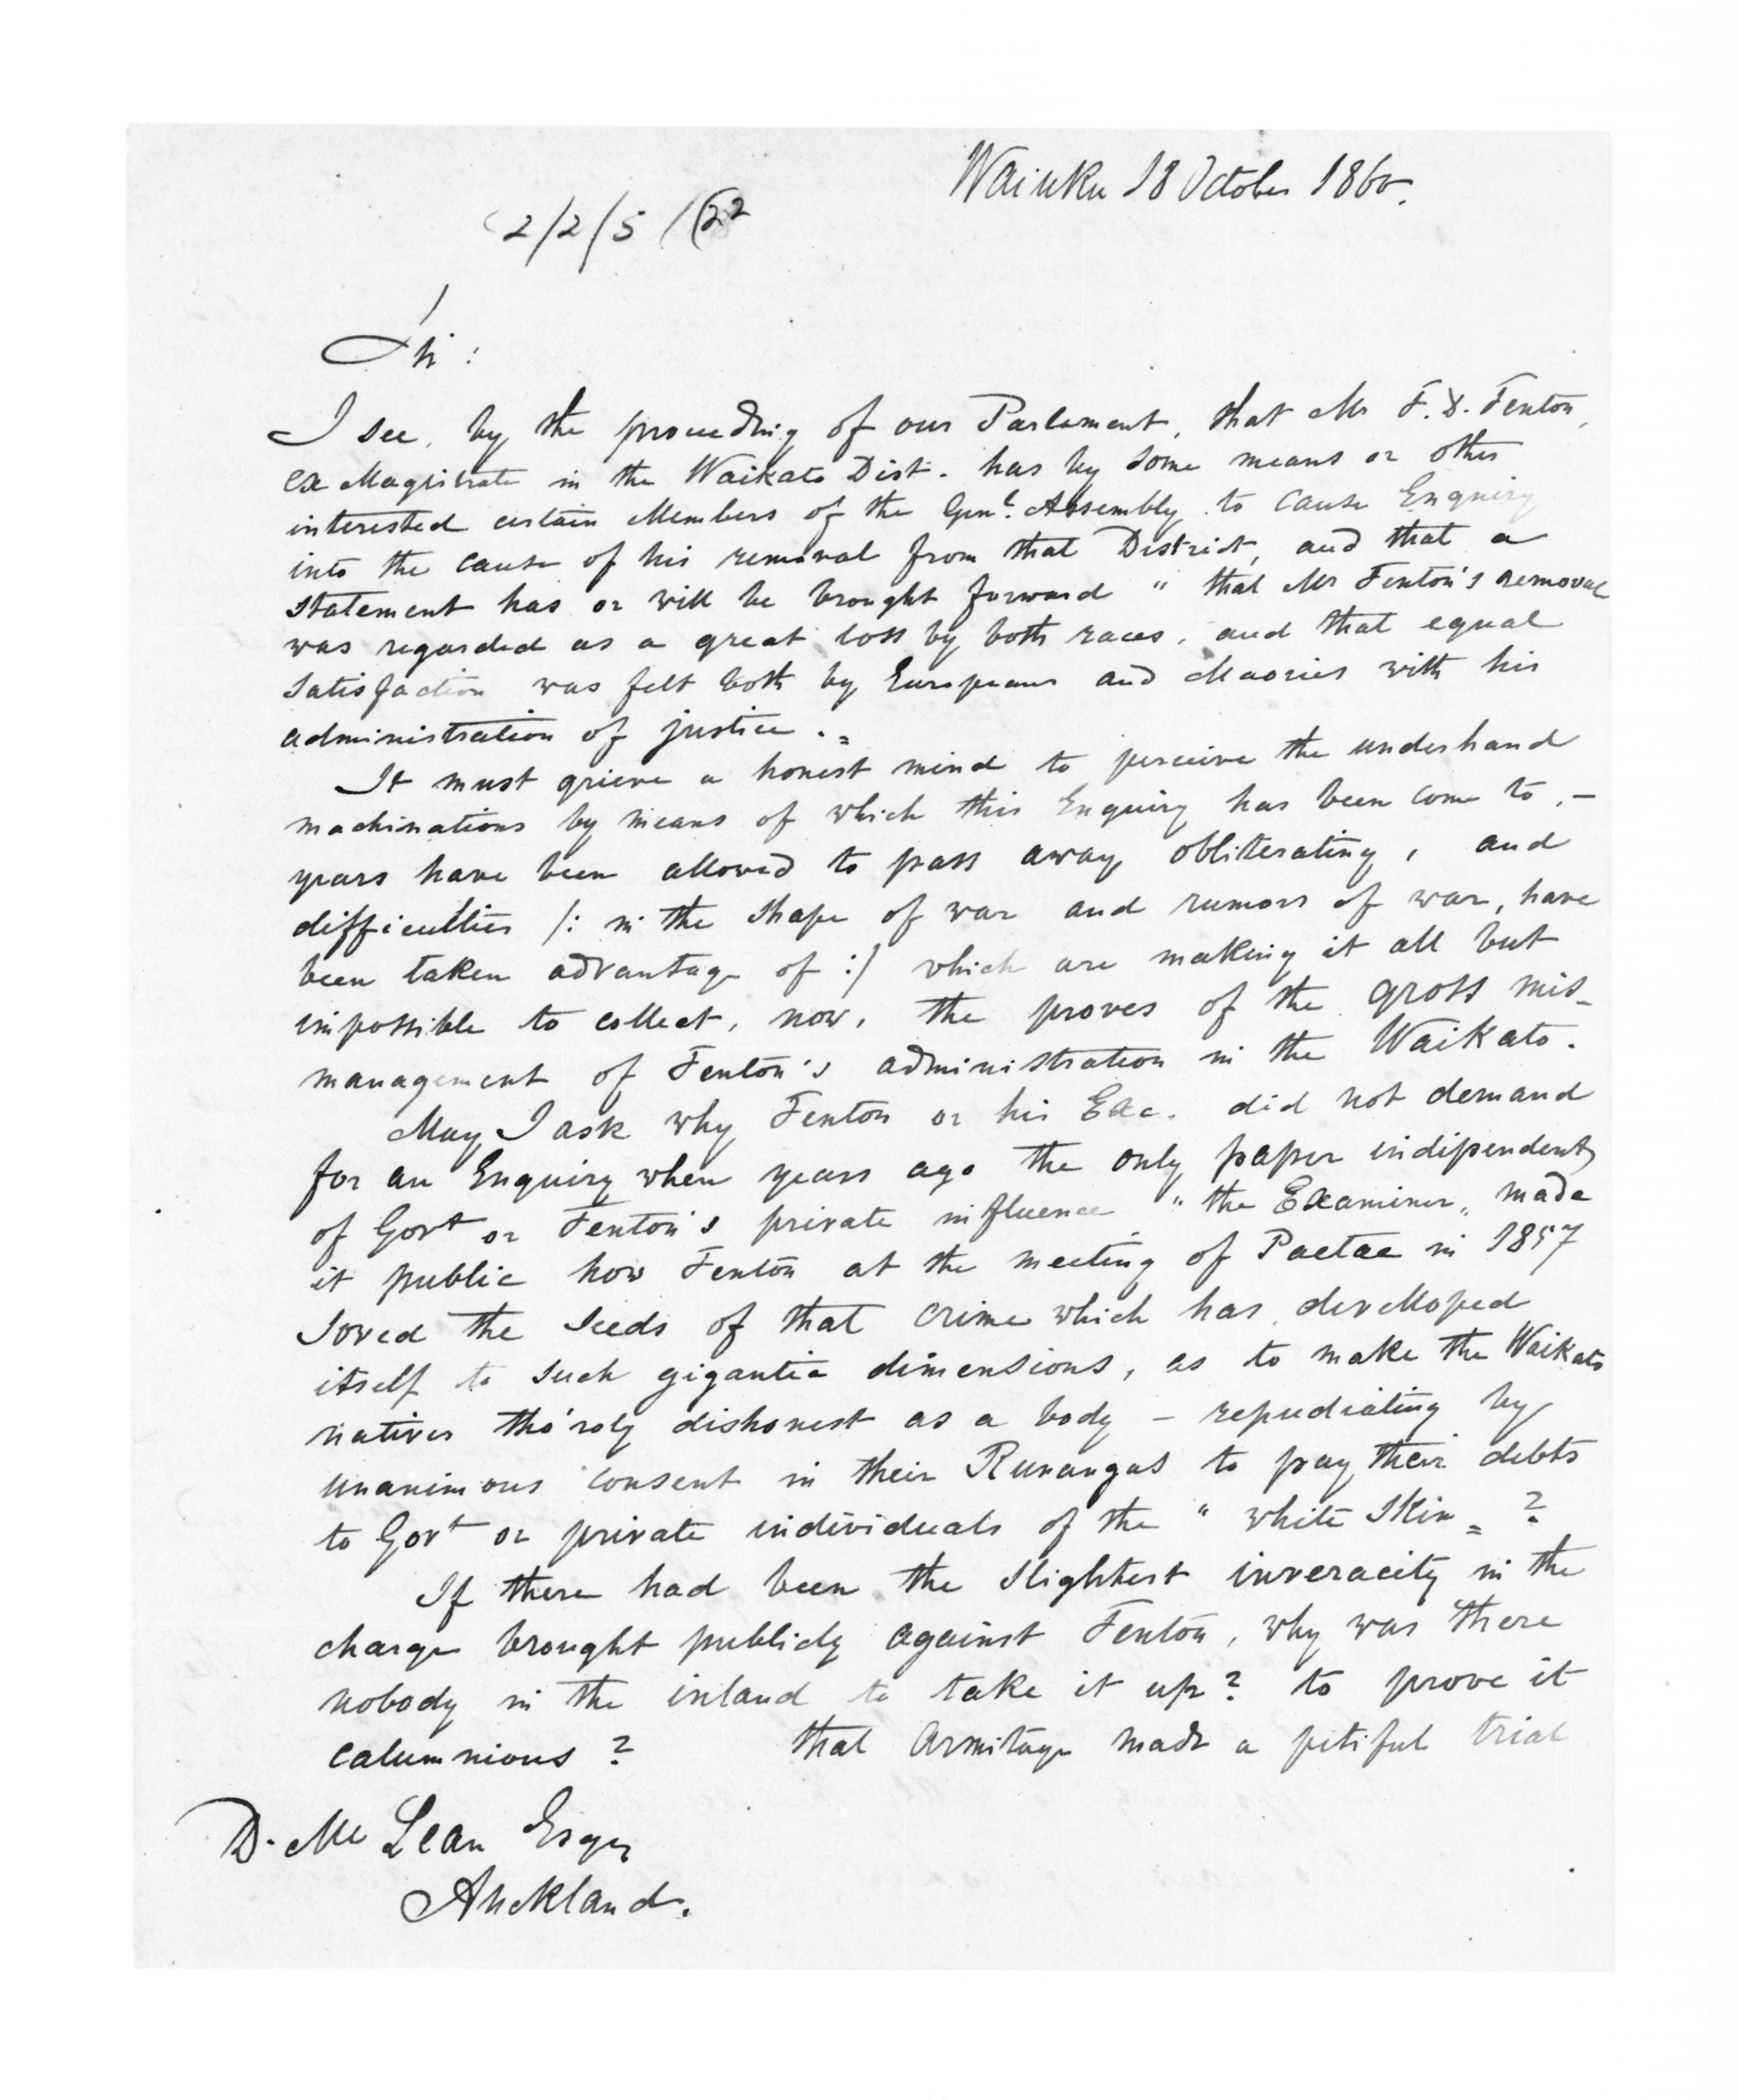 Waiuku 18 October 1860.
2/2/5 / (22
Sir:
I see, by the proceedhig of our Parlament, that Mr F. D. Fenton,
ex Magistrate in the Waikato Dist. has by some means or other
interested certain Members of the Genl. Assembly to cause Enquiry
into the cause of his removal from that District, and that a
statement has or will be brought forward " that Mr Fenton's removal
was regarded as a great loss by both races, and that equal
satisfaction was felt both by Europeans and Maories with his
administration of justice. "
It must grieve a honest mind to perceive the underhand
machinations by means of which this Enquiry has been come to, —
years have been allowed to pass away obliterating, and
difficulties /: in the shape of war and rumors of war, have
been taken advantage of :/ which are making it all but
impossible to collect, now, the proves of the gross mis-
management of Fenton's administration in the Waikato.
May I ask why Fenton or his Exc. did not demand
for an Enquiry when years ago the only paper indipendent
of Govt or Fenton's private influence "the Examiner" made
it public how Fenton at the meeting of Paetae in 1857
soved the seeds of that crime which has develloped
itself to such gigantic dimensions, as to make the Waikato
natives tho'roly dishonest as a body – repudiating by
unanimous consent in their Runangas to pay their debts
to Govt or private individuals of the " white skin " ?
If there had been the slightest inveracity in the
charge brought publicly against Fenton, why was there
nobody in the inland to take it up? to prove it
calumnious ? that Armitage made a pitiful trial
D. Mc Lean Esqr
Auckland.